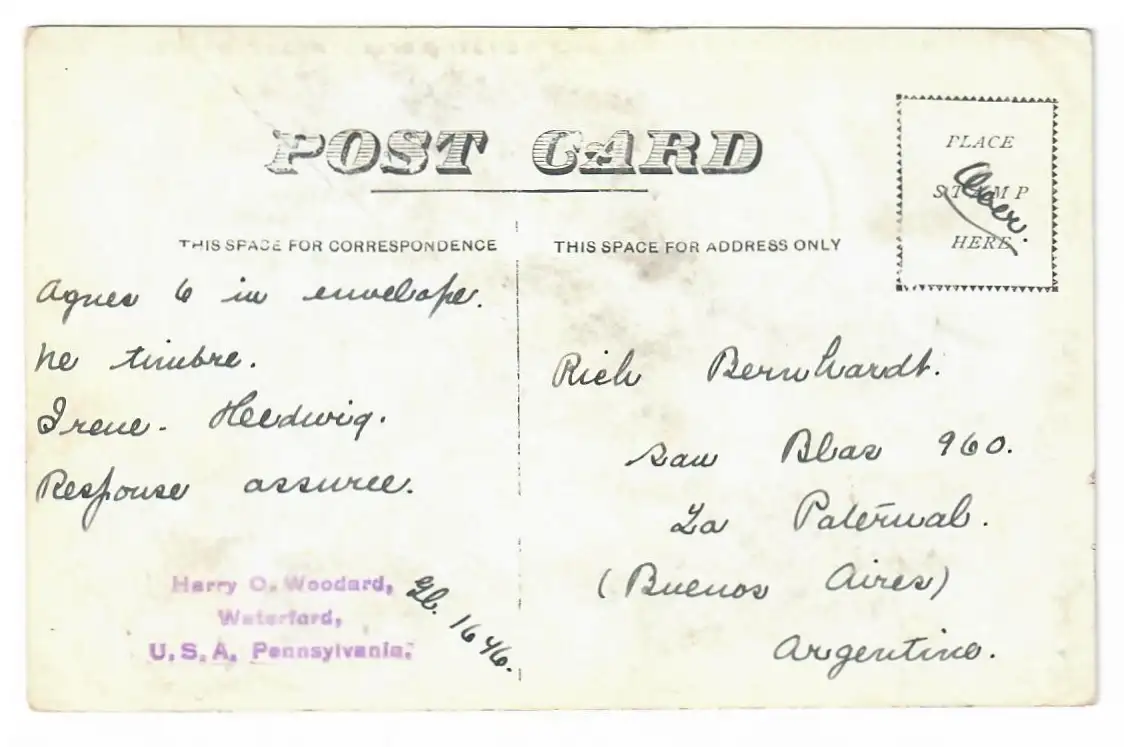 POST CARD
PLACE
STAMP
HERE
THIS SPACE FOR CORRESPONDENCE
THIS SPACE FOR ADDRESS ONLY
Agnes 6 in envelope.
ne timbre.
Irene. Heedwig.
Response assuree.
Harry O. Woodard,
Waterford,
U.S.A. Pennsylvania.
1646.
Rich Bernhardt.
San Blas 960.
La Paternal.
(Buenos Aires)
Argentino.